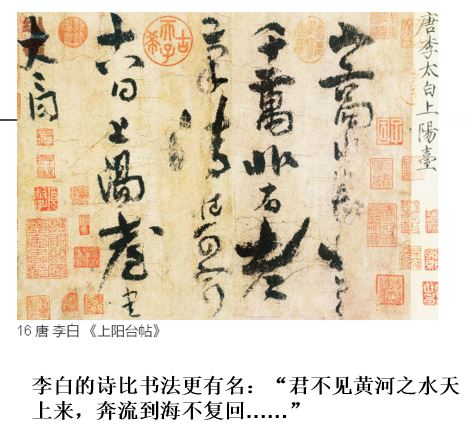 唐李太白上陽臺
山高水長物象
千萬非有老
筆清壯何窮
十八日上陽臺書
太白
古希天子
16 唐 李白 《上阳台帖》
李白的诗比书法更有名：“君不见黄河之水天
上来，奔流到海不复回……”